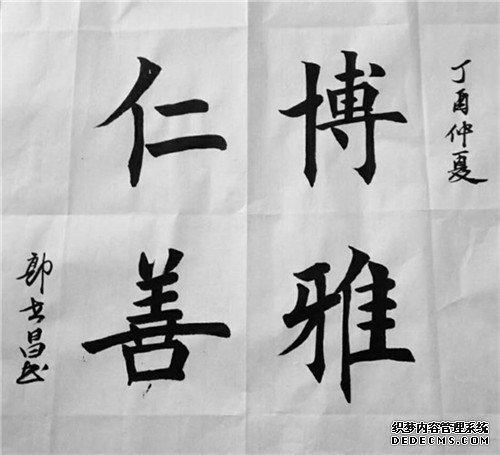 丁酉仲夏
博雅
仁善
郎 昌书
织梦内容管理系统
DEDECMS.COM